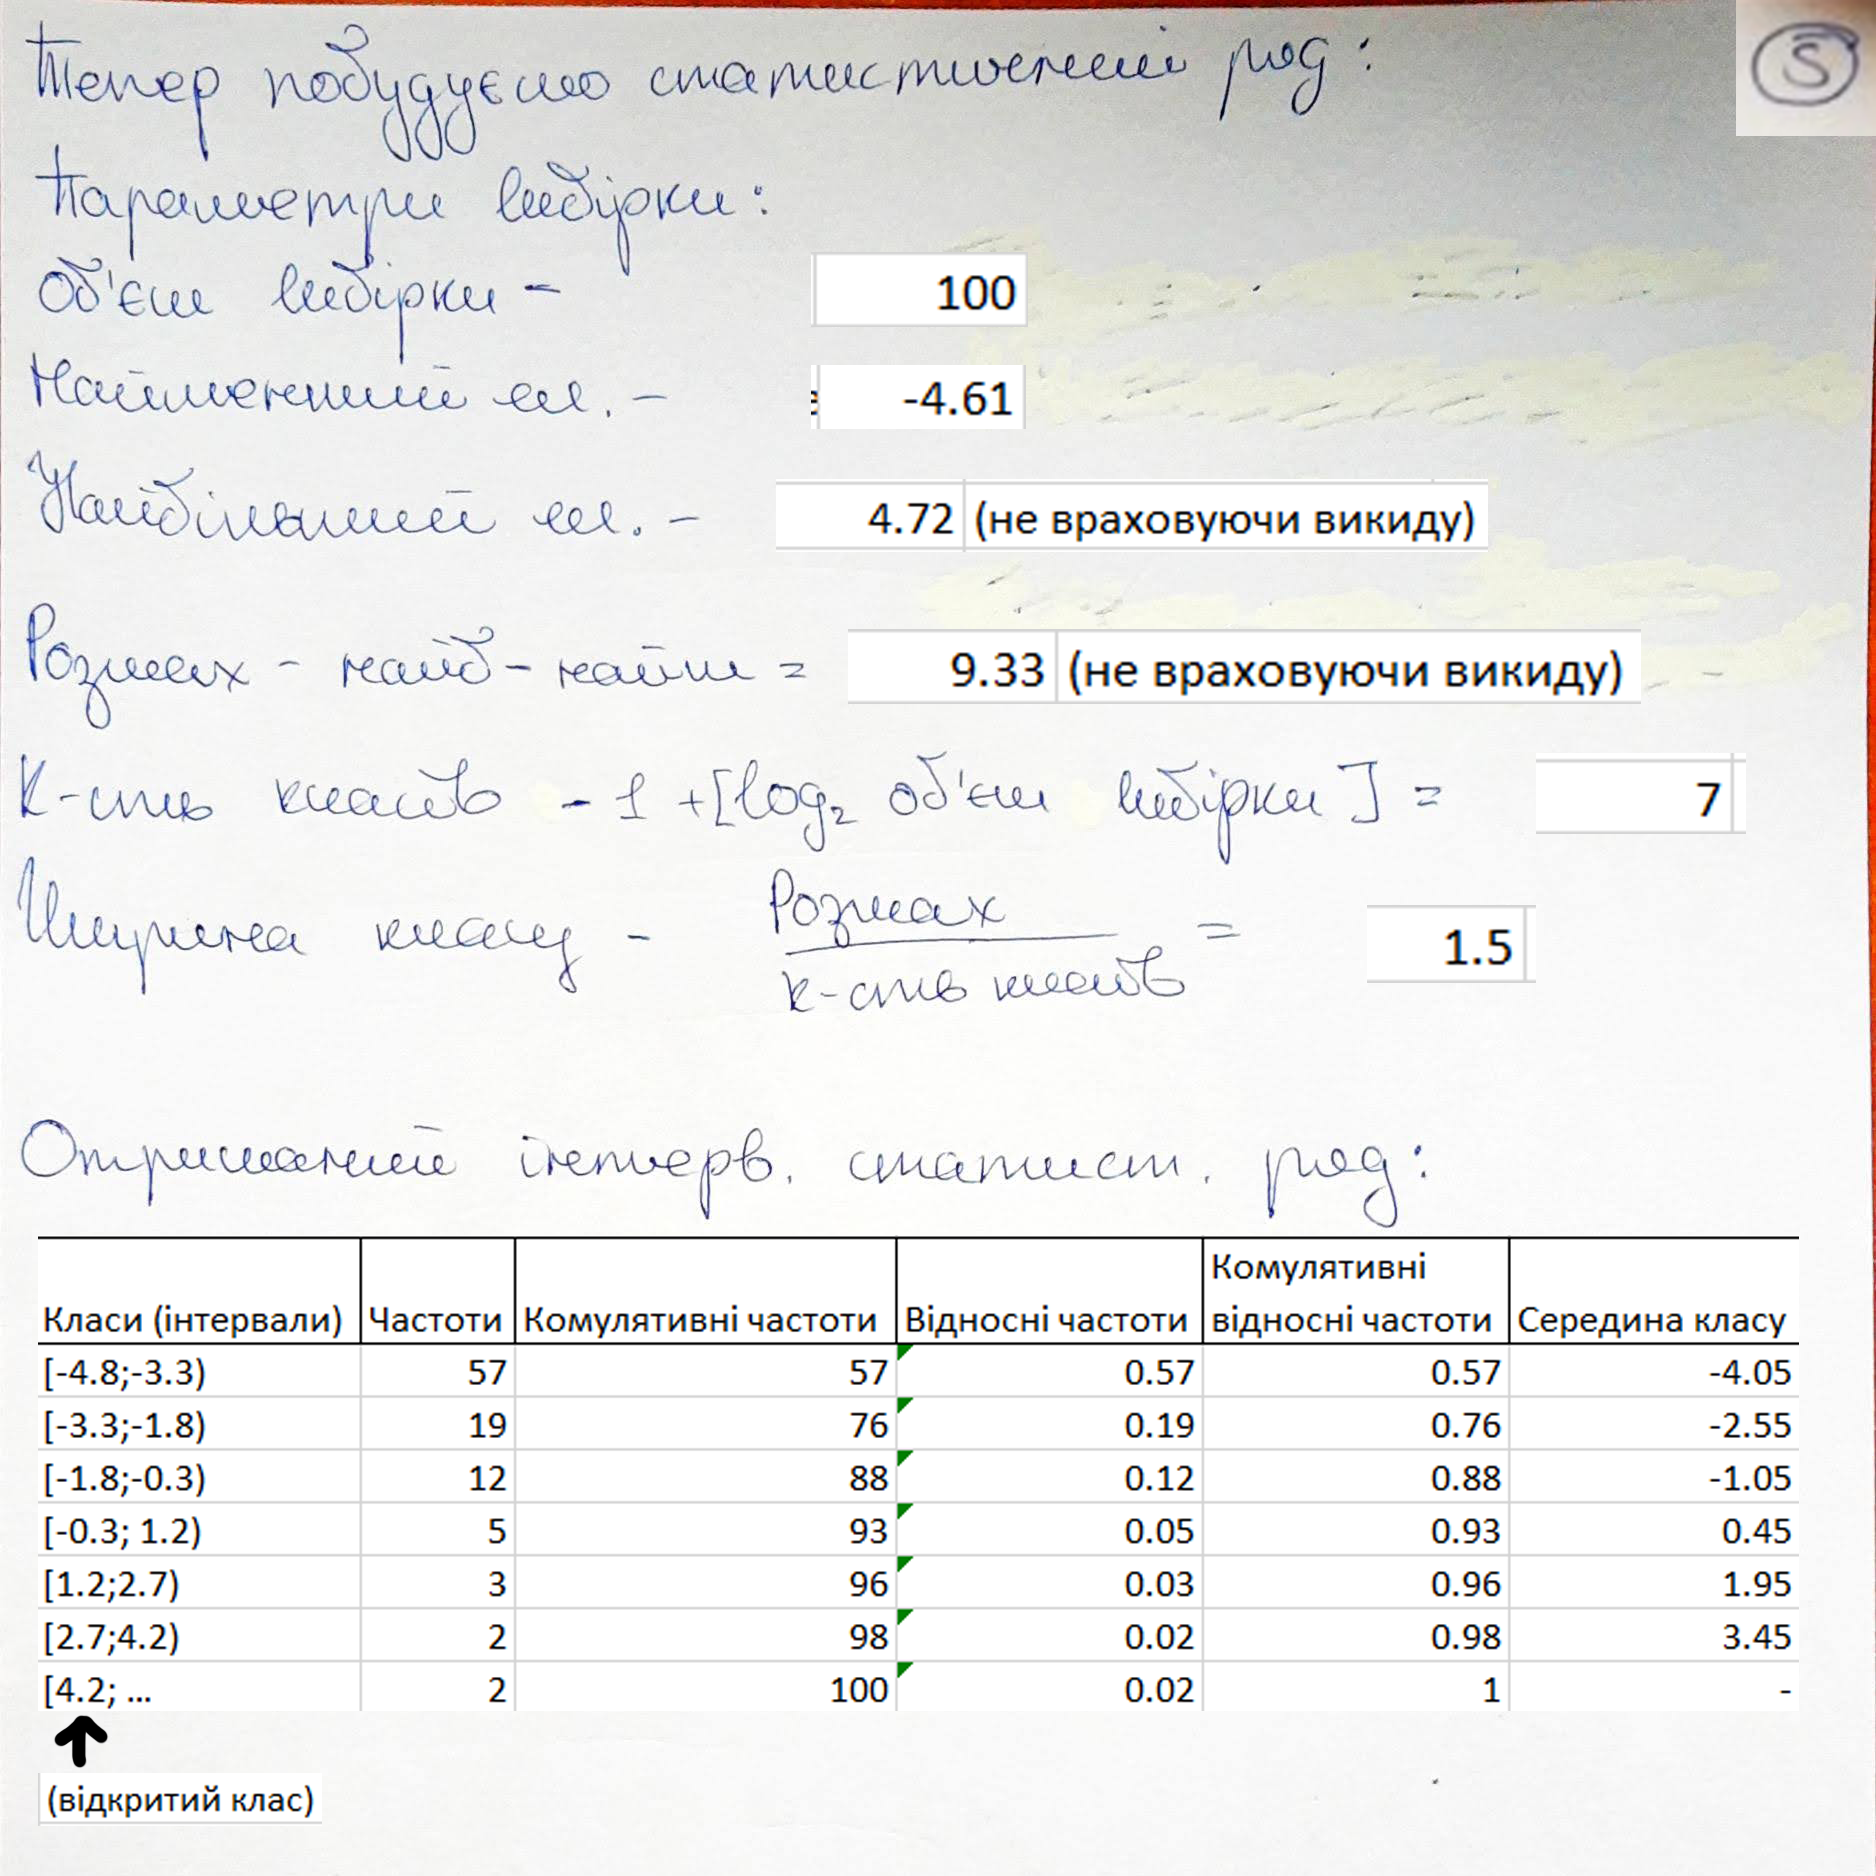 Тепер побудуємо статистичний ряд:
5
Параметри вибірки:
Об'єм вибірки - 100
Найменший ел. - -4.61
Найбільший ел. - 4.72 (не враховуючи викиду)
Розмах - найб - найм = 9.33 (не враховуючи викиду)
К-сть класів - 1 + [log₂ об'єм вибірки] = 7
Ширина класу - Розмах / к-сть класів = 1.5
Отриманий інтерв. статист. ряд:
Класи (інтервали) Частоти Комулятивні частоти Відносні частоти Комулятивні відносні частоти Середина класу
[-4.8;-3.3) 57 57 0.57 0.57 -4.05
[-3.3;-1.8) 19 76 0.19 0.76 -2.55
[-1.8;-0.3) 12 88 0.12 0.88 -1.05
[-0.3; 1.2) 5 93 0.05 0.93 0.45
[1.2;2.7) 3 96 0.03 0.96 1.95
[2.7;4.2) 2 98 0.02 0.98 3.45
[4.2; ... 2 100 0.02 1 -
(відкритий клас)